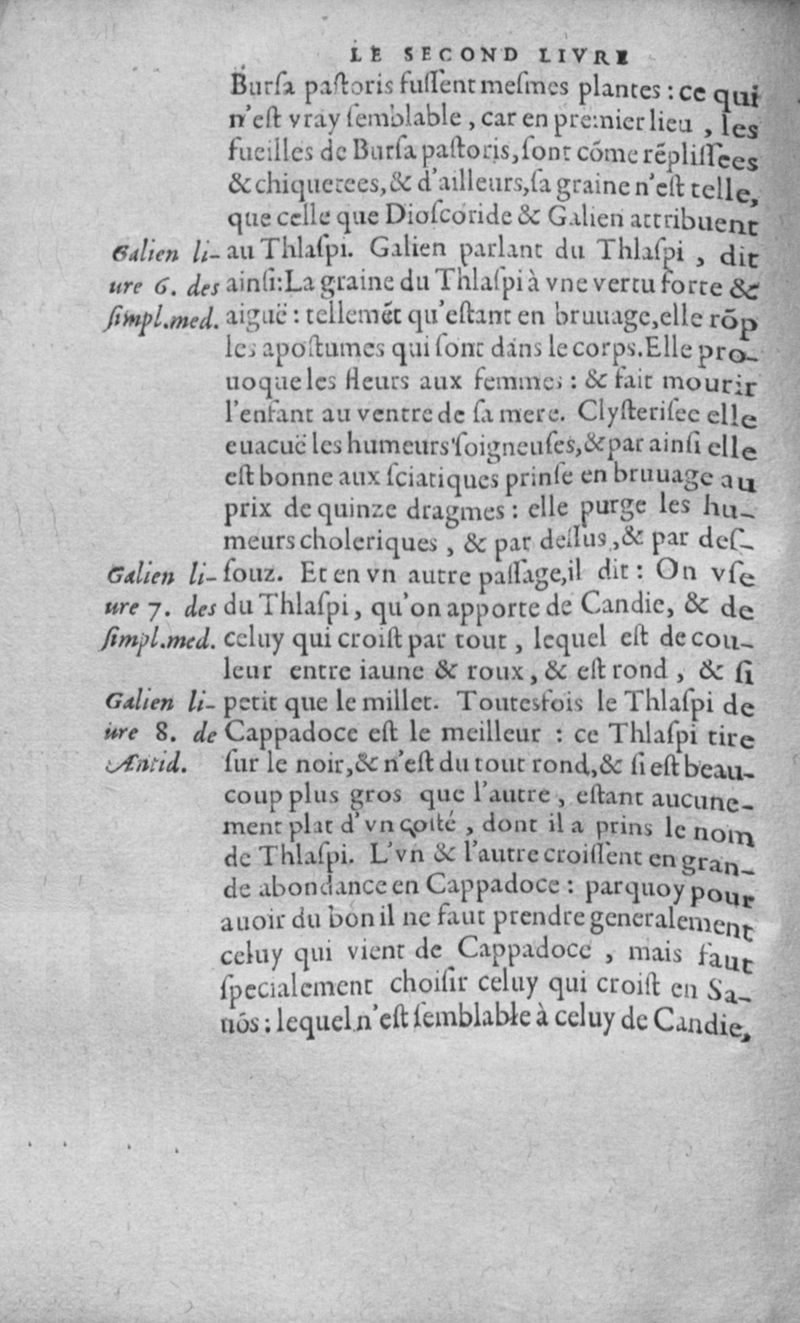 LE SECOND LIVRE
Burſa paſtoris fuſſent meſmes plantes : ce qui
n'eſt vray ſemblable , car en premier lieu , les
fueilles de Burſa paſtoris, ſont cõme rẽpliſſees
& chiquetees, & d'ailleurs, ſa graine n'eſt telle,
que celle que Dioſcoride & Galien attribuent
Galien li- au Thlaſpi. Galien parlant du Thlaſpi , dit
ure 6. des ainſi: La graine du Thlaſpi à vne vertu forte &
ſimpl.med. aiguë : tellemẽt qu'eſtant en bruuage, elle rõp
les apoſtumes qui ſont dans le corps. Elle pro-
uoque les fleurs aux femmes : & fait mourir
l'enfant au ventre de ſa mere. Clyſteriſee elle
euacuë les humeurs ſoigneuſes, & par ainſi elle
eſt bonne aux ſciatiques prinſe en bruuage au
prix de quinze dragmes : elle purge les hu-
meurs choleriques , & par deſſus , & par deſ-
Galien li- ſouz. Et en vn autre paſſage, il dit : On vſe
ure 7. des du Thlaſpi, qu'on apporte de Candie, & de
ſimpl.med. celuy qui croiſt par tout , lequel eſt de cou-
leur entre iaune & roux , & eſt rond , & ſi
Galien li- petit que le millet. Toutesfois le Thlaſpi de
ure 8. de Cappadoce eſt le meilleur : ce Thlaſpi tire
Antid. ſur le noir, & n'eſt du tout rond, & ſi eſt beau-
coup plus gros que l'autre , eſtant aucune-
ment plat d'vn coſté , dont il a prins le nom
de Thlaſpi. L'vn & l'autre croiſſent en gran-
de abondance en Cappadoce : parquoy pour
auoir du bon il ne faut prendre generalement
celuy qui vient de Cappadoce , mais faut
ſpecialement choiſir celuy qui croiſt en Sa-
nõs : lequel n'eſt ſemblable à celuy de Candie,